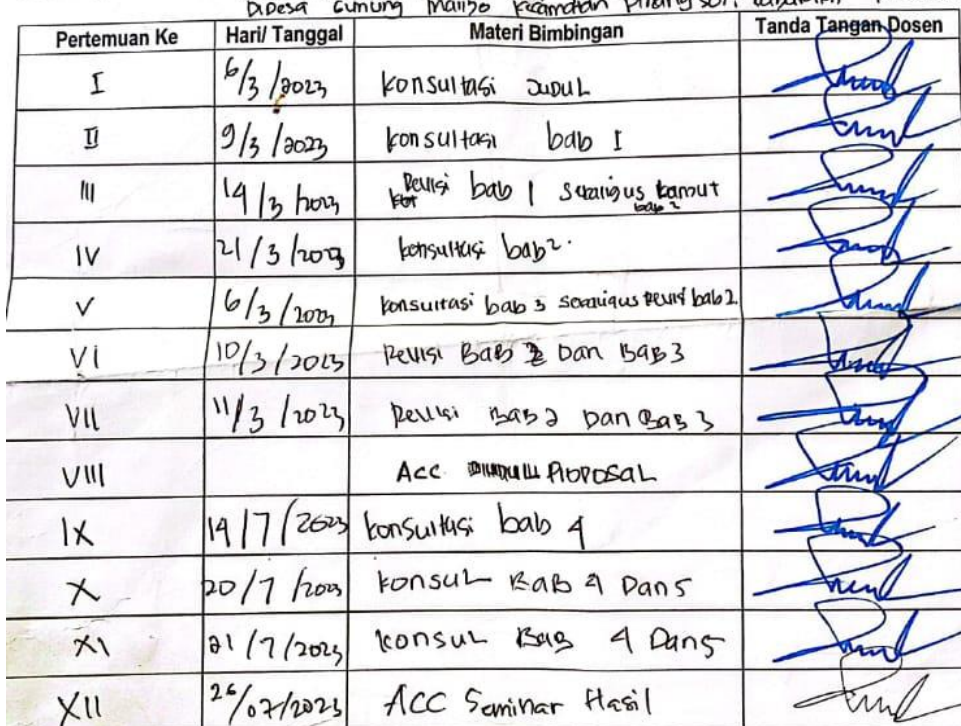 Didesa Gunung Kecamatan
Pertemuan Ke Hari/ Tanggal Materi Bimbingan Tanda Tangan Dosen
I 6/3/2023 konsultasi JUDUL
II 9/3/2023 konsultasi bab I
III 14/3/2023 Revisi bab 1
bab 2
IV 21/3/2023 konsultasi bab 2.
V 6/3/2023 konsultasi bab 3 Revisi bab 2
VI 10/3/2023 Revisi BAB 2 Dan BAB 3
VII 11/3/2023 Revisi BAB 2 Dan BAB 3
VIII Acc PROPOSAL
IX 14/7/2023 konsultasi bab 4
X 20/7/2023 konsul BAB 4 Dan 5
XI 21/7/2023 konsul BAB 4 Dan 5
XII 26/07/2023 ACC Seminar Hasil